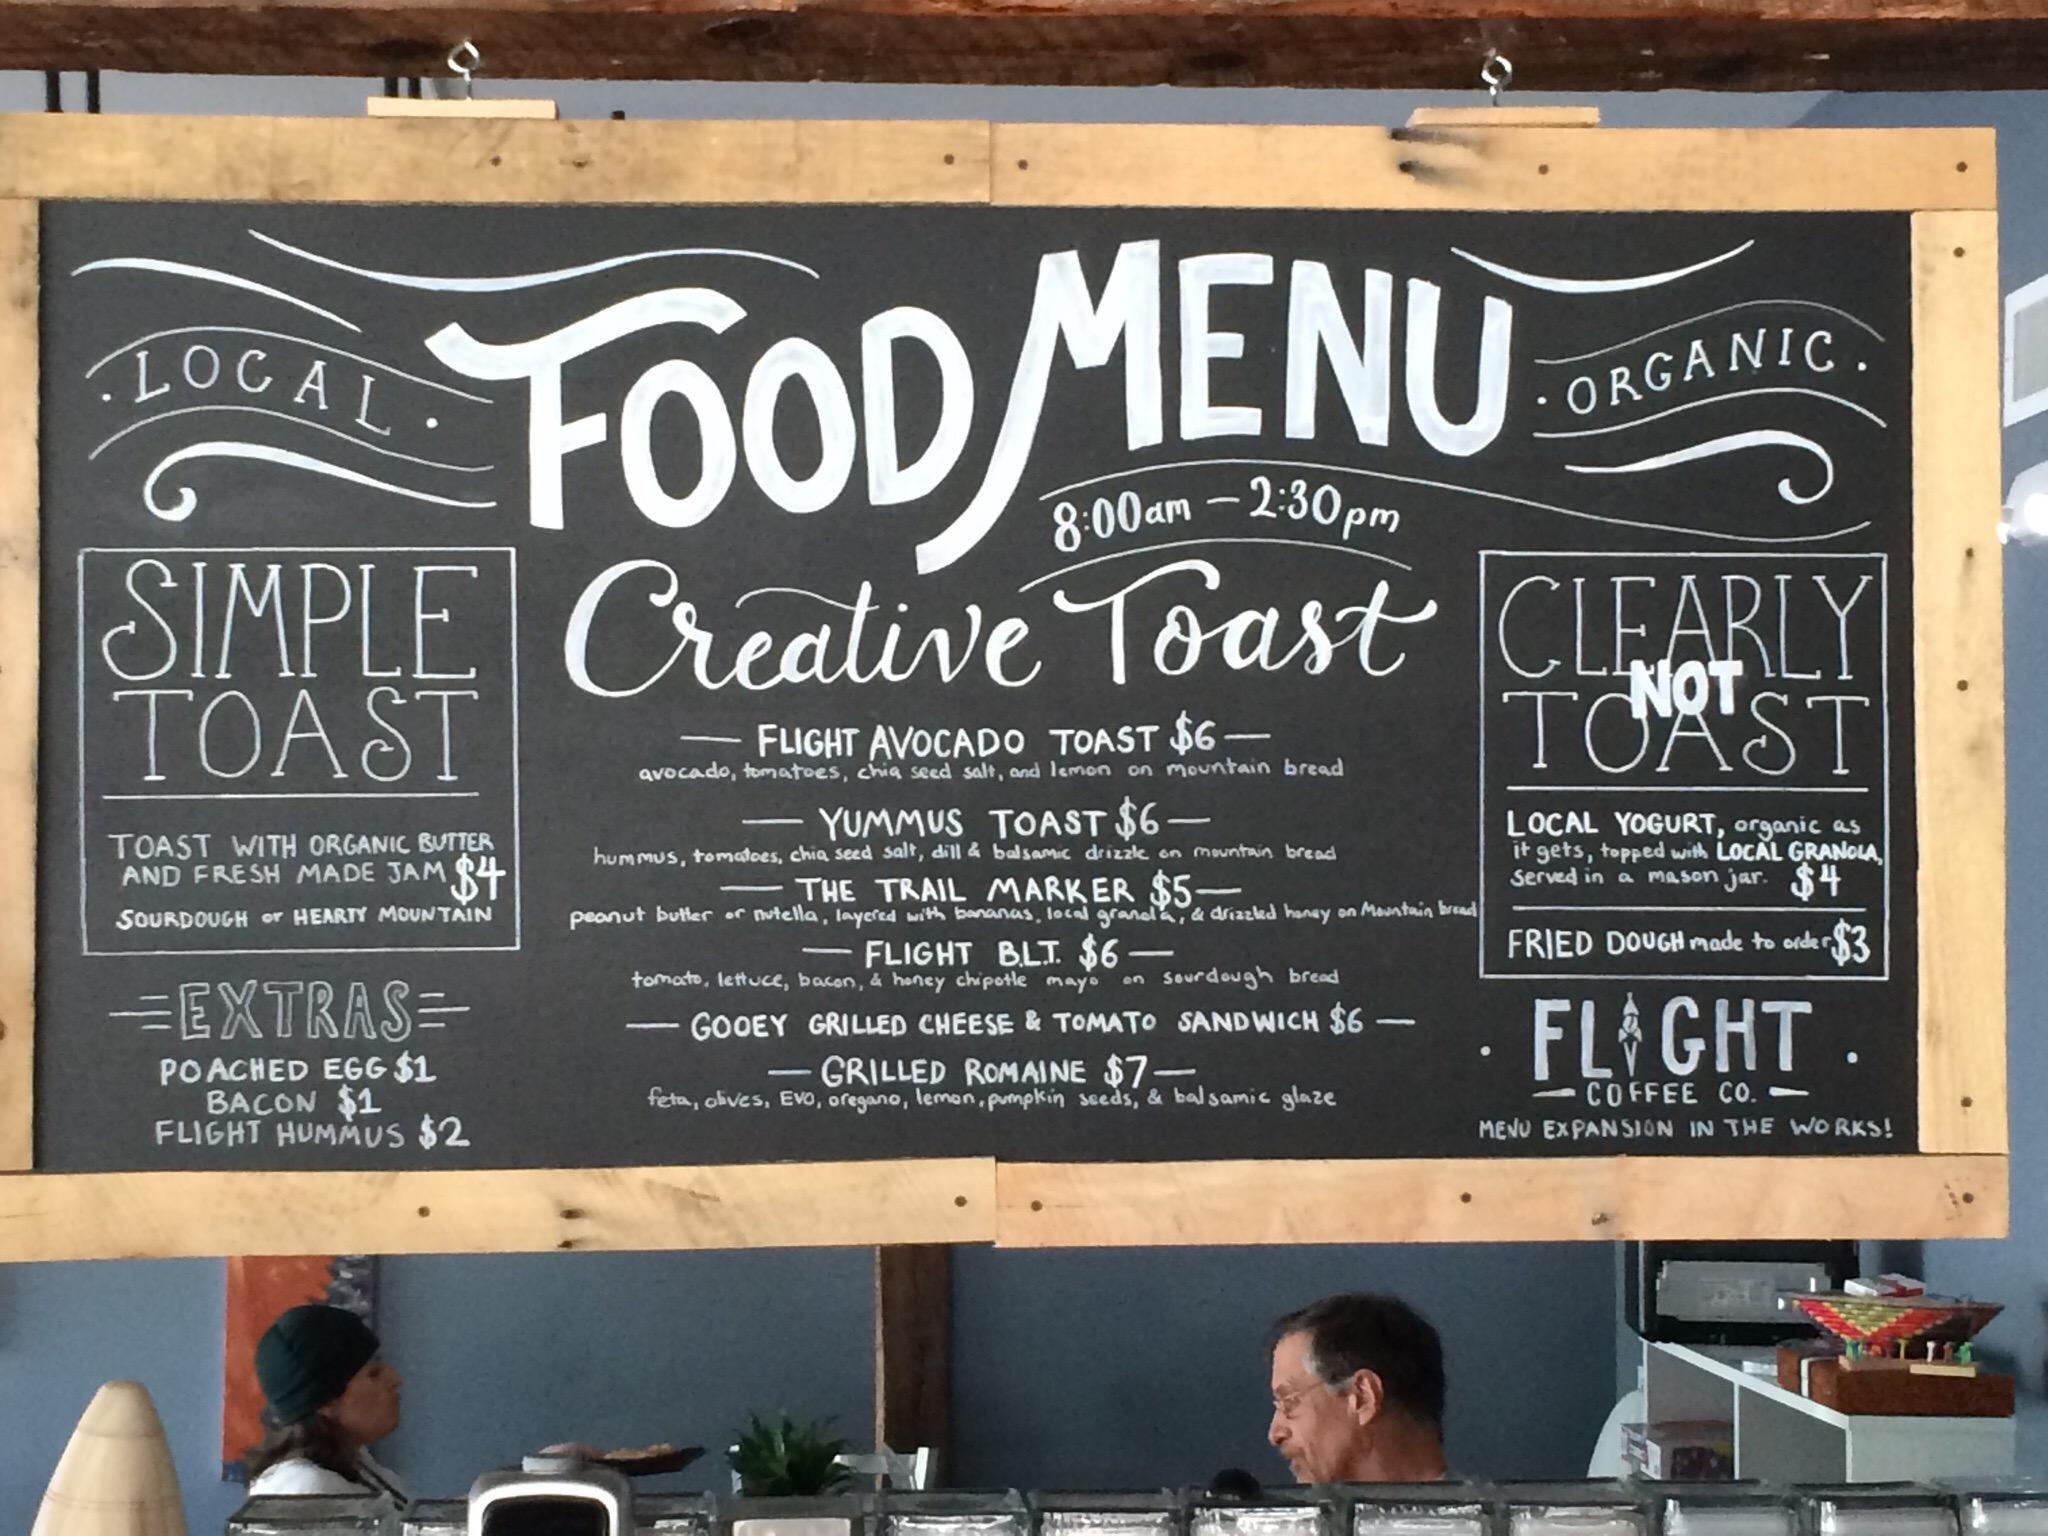 · LOCAL ·
FOOD MENU
· ORGANIC ·
8:00am – 2:30pm
SIMPLE
TOAST
TOAST WITH ORGANIC BUTTER
AND FRESH MADE JAM $4
SOURDOUGH or HEARTY MOUNTAIN
EXTRAS
POACHED EGG $1
BACON $1
FLIGHT HUMMUS $2
Creative Toast
— FLIGHT AVOCADO TOAST $6 —
avocado, tomatoes, chia seed salt, and lemon on mountain bread
— YUMMUS TOAST $6 —
hummus, tomatoes, chia seed salt, dill & balsamic drizzle on mountain bread
— THE TRAIL MARKER $5 —
peanut butter or nutella, layered with bananas, local granola, & drizzled honey on Mountain bread
— FLIGHT B.L.T. $6 —
tomato, lettuce, bacon, & honey chipotle mayo on sourdough bread
— GOOEY GRILLED CHEESE & TOMATO SANDWICH $6 —
— GRILLED ROMAINE $7 —
feta, olives, EVO, oregano, lemon, pumpkin seeds, & balsamic glaze
CLEARLY
NOT
TOAST
LOCAL YOGURT, organic as
it gets, topped with LOCAL GRANOLA,
served in a mason jar. $4
FRIED DOUGH made to order $3
· FLIGHT ·
— COFFEE CO. —
MENU EXPANSION IN THE WORKS!